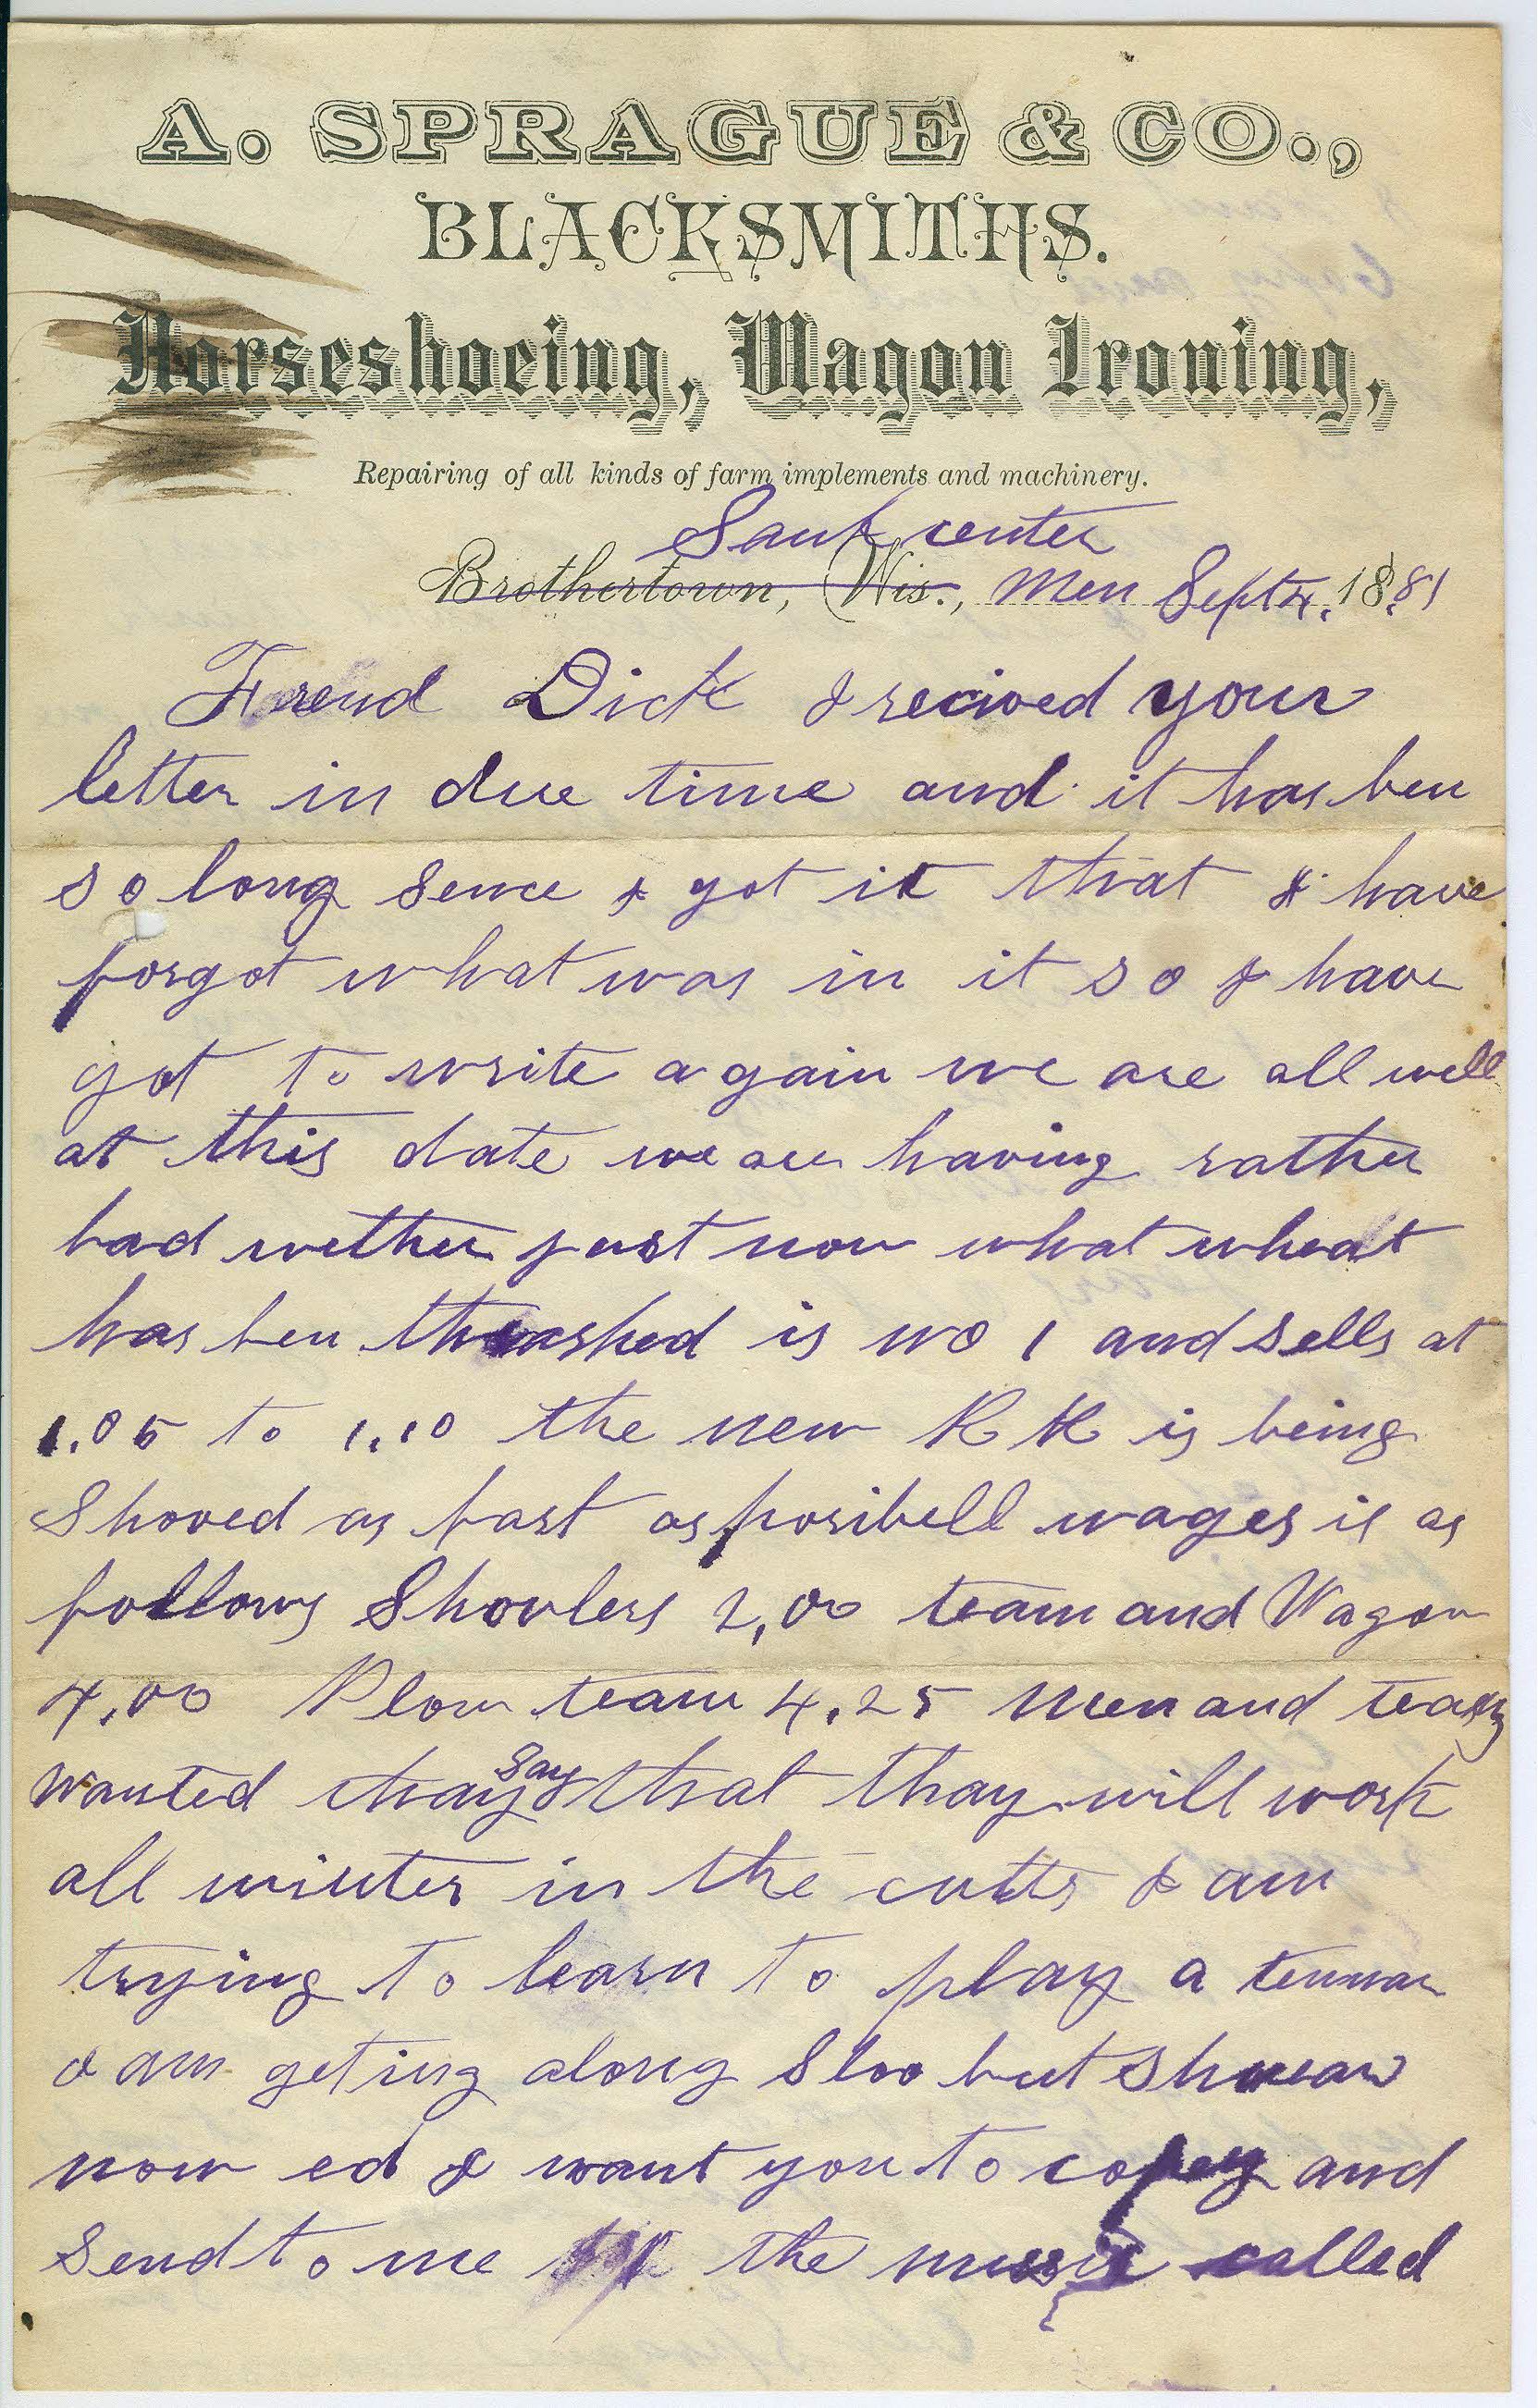 A. SPRAGUE & CO.,
BLACKSMITHS.
Horseshoeing, Wagon Ironing,
Repairing of all kinds of farm implements and machinery.
Sauk center
Brothertown, Wis., Men Sept 4, 1881
Frend Dick I recived your
letter in due time and it has ben
so long sence I got it that I have
forgot what was in it so I have
got to write again we are all well
at this date we are having rather
bad wether just now what wheat
has ben thrashed is no 1 and sells at
1.05 to 1.10 the new R R is being
Shoved as fast as posibell wages is as
follows Shovlers 2,00 team and Wagon
4,00 Plow team 4.25 Men and teams
wanted thay say that thay will work
all winter in the cutts I am
trying to learn to play a tennar
I am geting along Sloo but
now ed I want you to copey and
Send to me the music called